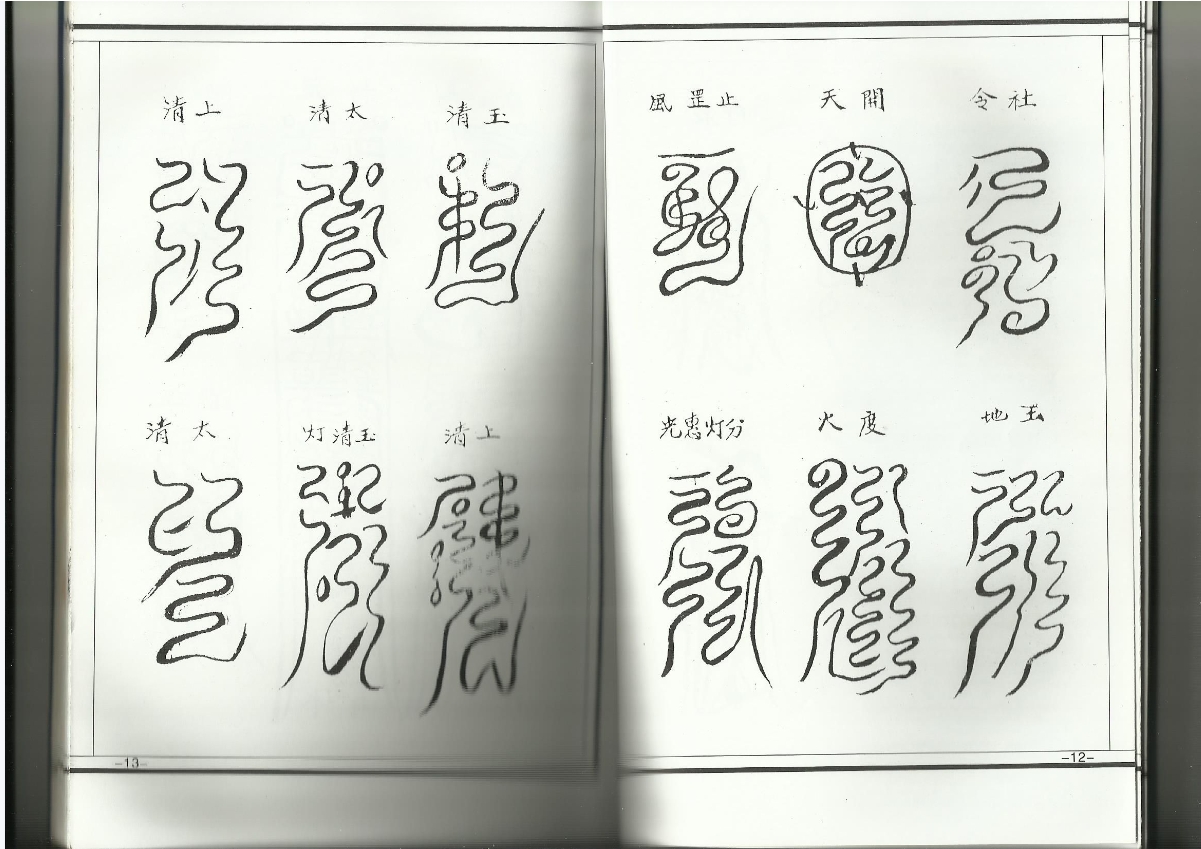 社令
開天
止罡風
玉地
度火
分灯惠光
-12-
玉清
太清
上清
上清
玉清灯
太清
-13-